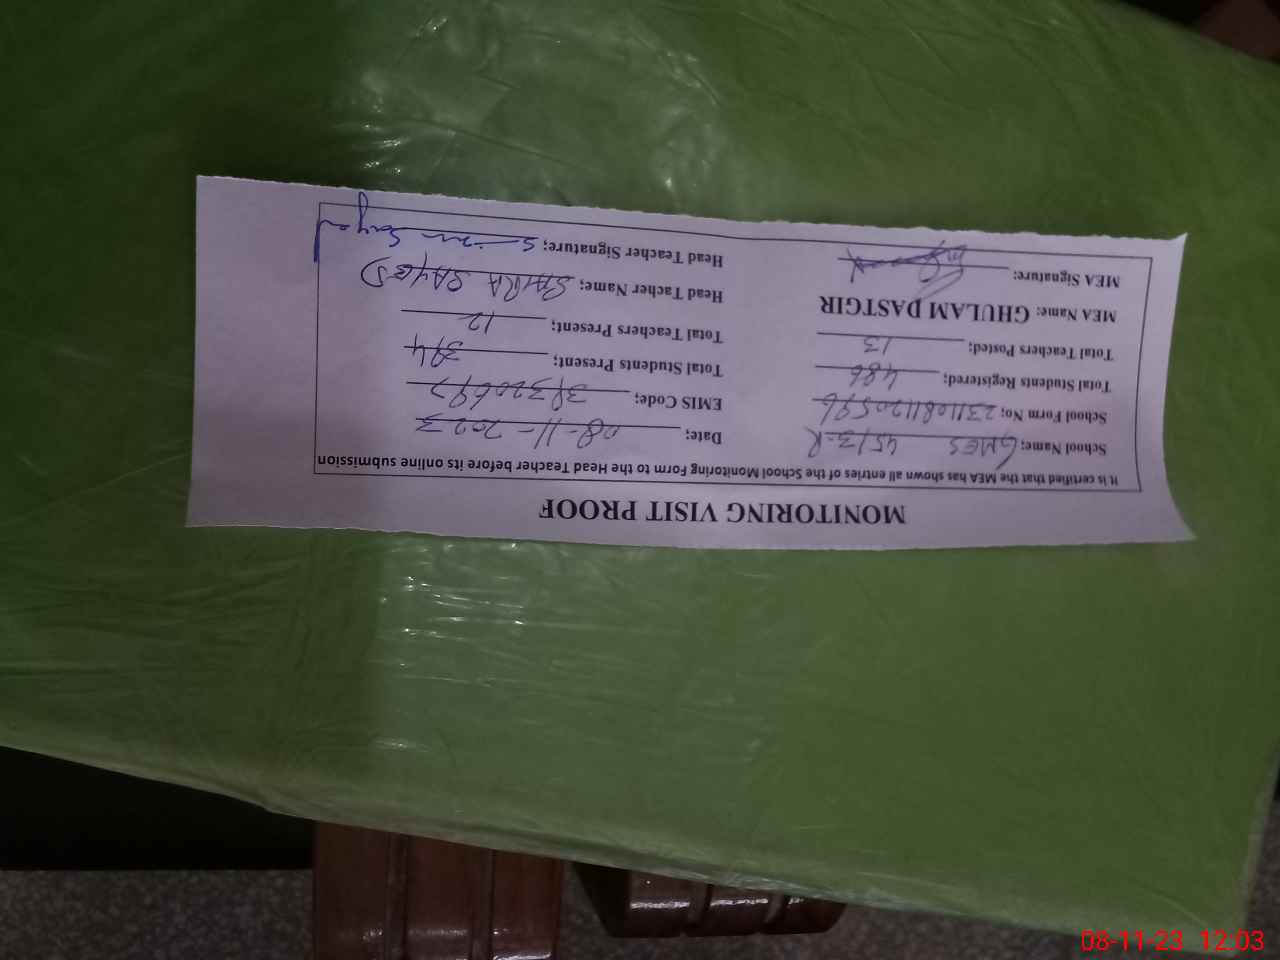 MONITORING VISIT PROOF
It is certified that the MEA has shown all entries of the School Monitoring Form to the Head Teacher before its online submission
School Name; GMES 45/3-R Date; 08-11-2023
School Form No; 231108112059 EMIS Code;
Total Students Registered; 486 Total Students Present; 394
Total Teachers Posted; 13 Total Teachers Present; 12
MEA Name: GHULAM DASTGIR Head Tacher Name; SAIRA SAYED
MEA Signature: Head Teacher Signature;
08-11-23 12:03